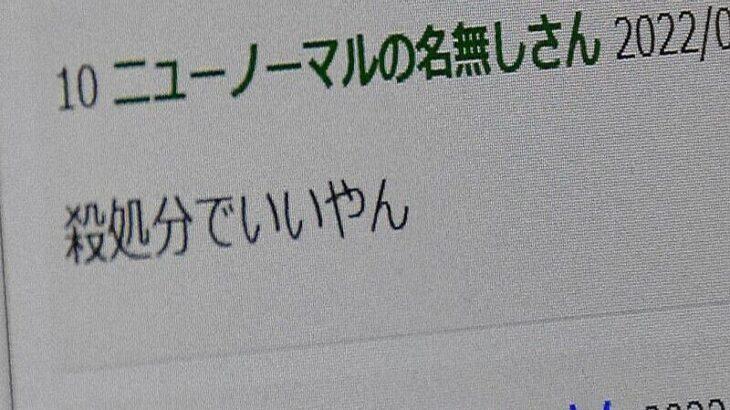 10 ニューノーマルの名無しさん 2022/0
殺処分でいいやん